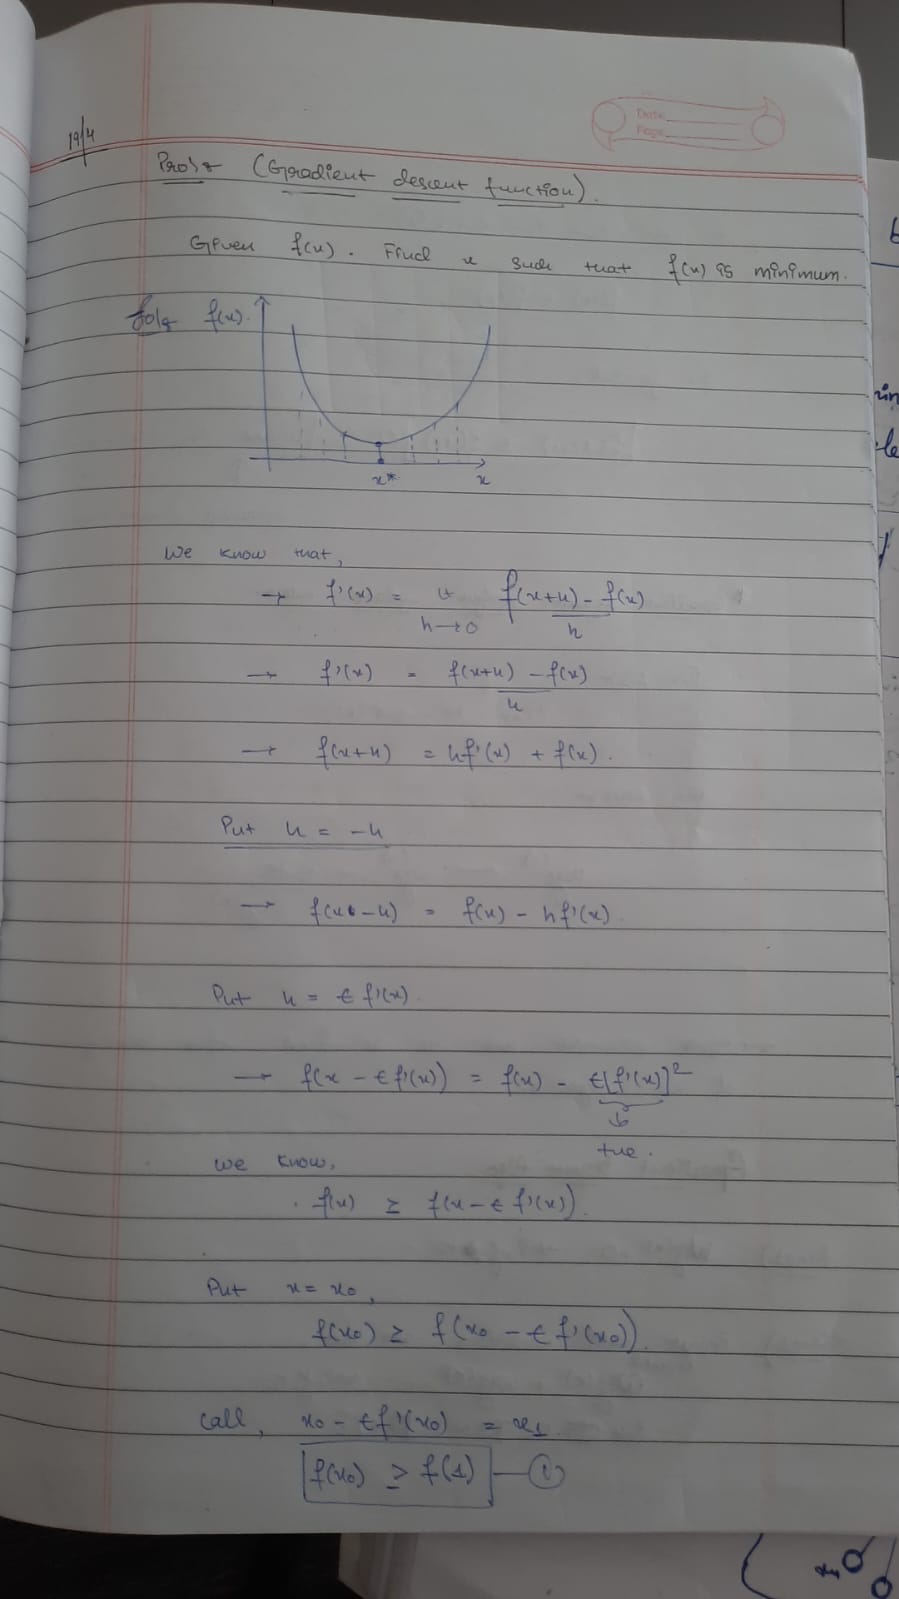 19/4
Date
Page
Prob: (Gradient descent function).
Given f(x). Find x such that f(x) is minimum.
Sol: f(x).
x* x
We know that,
→ f'(x) = lt h→0 f(x+h) - f(x) / h
→ f'(x) = f(x+h) - f(x) / h
→ f(x+h) = hf'(x) + f(x).
Put h = -h
→ f(x-h) = f(x) - hf'(x).
Put h = ϵ f'(x).
→ f(x - ϵ f'(x)) = f(x) - ϵ[f'(x)]²
+ve.
We know,
f(x) ≥ f(x - ϵ f'(x)).
Put x = x₀,
f(x₀) ≥ f(x₀ - ϵ f'(x₀)).
Call, x₀ - ϵf'(x₀) = x₁.
f(x₀) ≥ f(1) — ①